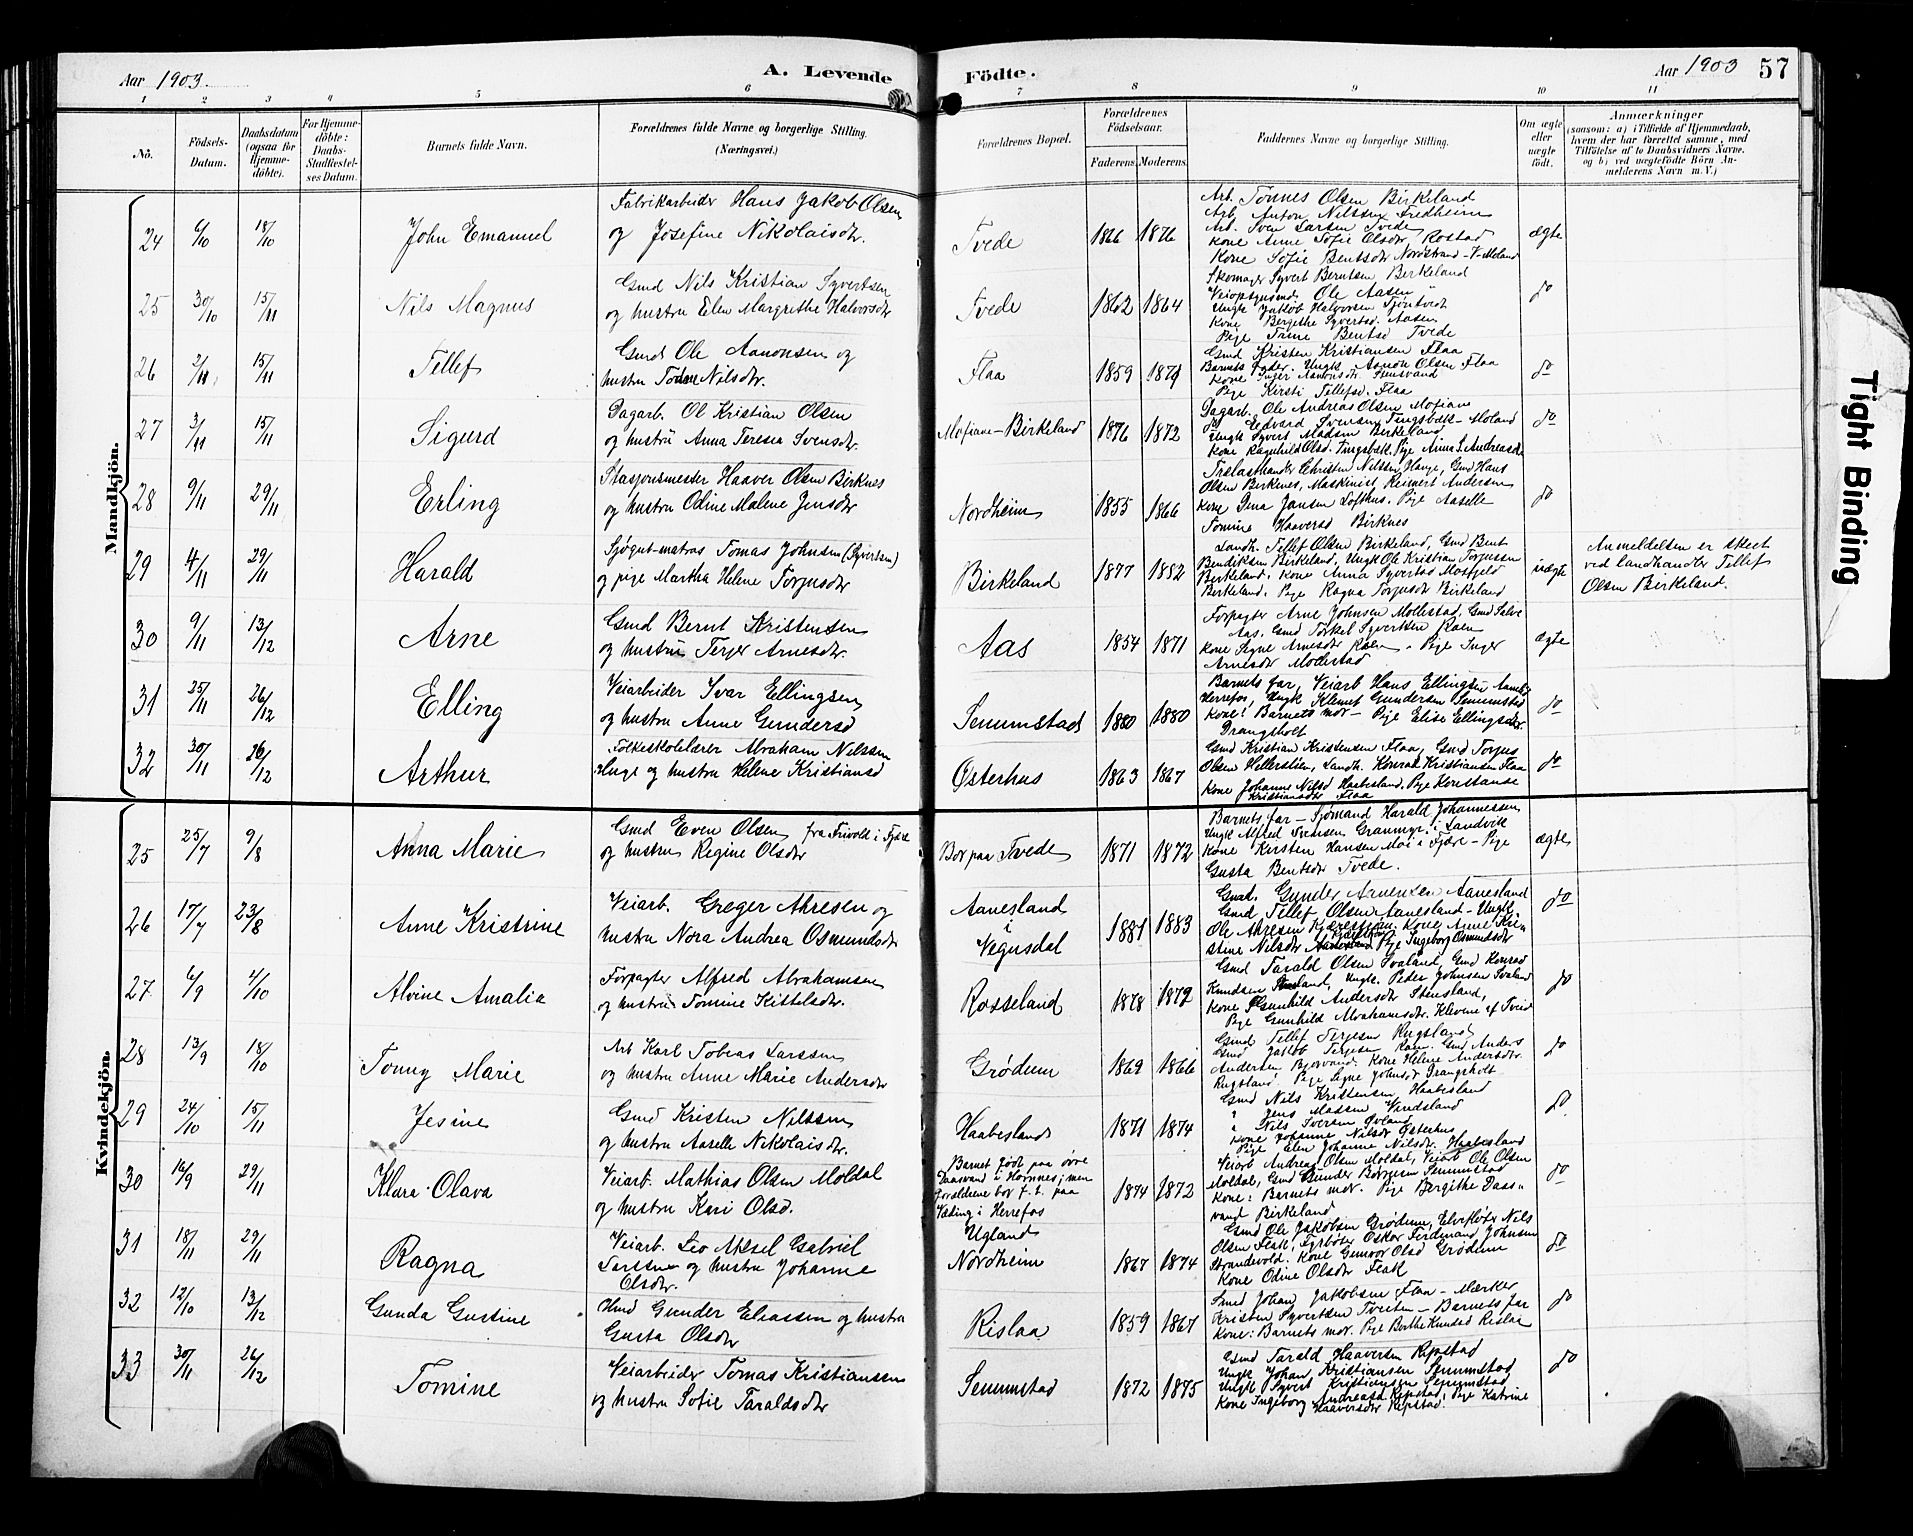 Aar 1903.
A. Levende Födte.
Aar 1903
57
1 2 3 4 5 6 7 8 9 10 11
No.
Födsels-Datum.
Daabsdatum (ogsaa for Hjemme-döbte).
For Hjemme-döbte: Daabs-Stadfæstel-ses Datum.
Barnets fulde Navn.
Forældrenes fulde Navne og borgerlige Stilling. (Næringsvei.)
Forældrenes Bopæl.
Forældrenes Födselsaar.
Faderens. Moderens.
Faddernes Navne og borgerlige Stilling.
Om ægte eller uægte födt.
Anmærkninger (saasom: a) i Tilfælde af Hjemmedaab, hvem der har forrettet samme, med Tilföielse af to Daabsvidners Navne, og b) ved uægtefödte Börn An-melderens Navn m. V.)
Mandkjön.
24 6/10 18/10 John Emanuel
Fabrikarbeider Hans Jakob Olsen
og Josefine Nikolaisdtr.
Tvede 1866 1876
Arb. Tönnes Olsen Birkeland
Arb. Anton Nilssen Fredheim
Art. Sven Larsen Tvede
Kone Anne Sofie Olsdtr, Rostad
Kone Sofie Bentsdtr Nordstrand V-Moland
ægte
25 30/10 15/11 Nils Magnus
Gmd Nils Kristian Syvertsen
og hustru Elen Margrethe Halvorsdtr
Tvede 1862 1864
Skomager Syvert Berntsen Birkeland
Veiopsynsmd. Ole Aasen
Ungk Jakob Halvorsen Tjentvedt
Kone Bergithe Syvertsd. Aasen
Pige Trine Bentsd Tvede
do
26 2/11 15/11 Tellef
Gmd Ole Aanonsen og
hustru Tomine Nilsdtr.
Flaa 1859 1871
Gmd Kristen Kristiansen Flaa
Barnets Fader. Ungk Aanon Olsen Flaa
Kone Inger Aanonsdtr
Pige Kirsti Tellefsd. Flaa
do
27 3/11 15/11 Sigurd
Dagarb. Ol Kristian Olsen
og hustru Anna Teresia Svensdtr.
Mofiane-Birkeland 1876 1872
Dagarb. Ole Andreas Olsen Mofiane
do Edvard Svensen Tingsbæk - Moland
Ungk Syvert Madsen Birkeland
Kone Ragnhild Olsd. Tingsbæk. Pige Anna L Andreasdr
do
28 9/11 29/11 Erling
Stasjonsmester Haaver Olsen Birknes
og hustru Odine Malene Jensdtr
Nordheim 1855 1866
Trælasthandler Christen Nilssen Hauge, Gmd Hans
Olsen Birkenes, Maskinist Reinert Andersen
Kone Dina Jansen Lofthus. Pige Aaselle
Tomine Haaversd Birknes
do
29 4/11 29/11 Harald
Sjøgut-matros Tomas Johnsen (Syvertsen)
og pige Martha Helene Torjusdtr
Birkeland 1877 1882
Landh. Tellef Olsen Birkeland, Gmd Bent
Bendiksen Birkeland, Ungk Ole Kristian Torjussen
Birkeland. Kone Anna Syvertsd Mosfjeld
Birkeland. Pige Ragna Torjusdtr Birkeland
uægte
Anmeldelsen er skeet
ved landhandler Tellef
Olsen Birkeland.
30 9/11 13/12 Arne
Gmd Bernt Kristensen
og hustru Terjer Arnesdtr.
Aas 1854 1871
Forpagter Arne Johnsen Mollestad. Gmd Salve
Aas. Gmd Torkel Syvertsen Roen
Kone Signe Arnesdtr Roen. Pige Inger
Arnesdtr Mollestad
ægte
31 25/11 26/12 Elling
Veiarbeider Ivar Ellingsen
og hustru Anne Gundersd
Senumstad 1880 1880
Barnets far, Veiarb Hans Ellingsen
Herrefos, Ungk Klemet Gundersen Senumstad
Kone: Barnets mor - Pige Elise Ellingsdtr
Drangsholt
do
32 30/11 26/12 Arthur
Folkeskolelærer Abraham Nilssen
Huge og hustru Helene Kristiansd
Østerhus 1863 1867
Gmd Kristian Kristensen Flaa, Gmd Torjus
Olsen Hellersliën, Landh. Konrad Kristiansen Flaa
Kone Johanne Nilsd Haabesland. Pige Konstanse
Kristiansdtr Flaa
do
Kvindekjön.
25 25/7 9/8 Anna Marie
Gmd Even Olsen fra Frivold i Fjære
og hustru Regine Olsdtr
Bor paa Tvede 1871 1872
Barnets far - Sjømand Harald Johannessen
Ungk Alfred Svensen Granmyr i Landvik
Kone Kirsten Hansen Moi i Fjære - Pige
Gusta Bentsdtr Tvede.
ægte
26 17/7 23/8 Anne Kristine
Veiarb. Greger Akresen og
hustru Nora Andrea Osmundsdtr
Aanesland
i
Vegusdal
1881 1883
Gmd. Gunder Arnensen Aanesland
Gmd Tellef Olsen Aanesland - Ungk.
Ole Akresen Kone Anne Kri
stine Nilsdtr Pige Ingeborg Osmundsdtr
do
27 6/9 4/10 Alvine Amalia
Forpagter Alfred Abrahamsen
og hustru Tomine Kittelsdtr.
Rosseland 1878 1872
Gmd Tarald Olsen Svaland, Gmd Konrad
Knudsen Ungk. Peder Johnsen Svaland
Kone Gunhild Andersdtr Stensland,
Pige Gunhild Abrahamsdtr. Klevene af Tveid
do
28 13/9 18/10 Tonny Marie
Arb Karl Tobias Larssen
og hustru Anne Marie Andersdtr
Grødum 1869 1866
Gmd Tellef Terjesen Rugsland
Gmd Jakob Terjesen Roen. Gmd Anders
Andersen Bjorvand. Kone Helene Andersdtr.
Rugsland Pige Signe Johnsdt Drangsholt
do
29 24/10 15/11 Jesine
Gmd Kristen Nilssen
og hustru Aaselle Nikolaisdtr.
Haabesland 1871 1874
Gmd Nils Kristensen Haabesland
" Jens Madsen Vindsland
" Nils Iversen Øvland
Kone Johanne Nilsdtr Østerhus
Pige Elen Johanne Nilsdtr. Haabesland
do.
30 16/9 29/11 Klara Olava
Veiarb. Mathias Olsen Moldal
og hustru Kari Olsd.
Barnet født paa øvre
Daasvand i Hornnes; men
forældrene bor f. t. paa
Væting i Herrefos
1874 1872
Veiarb Andreas Olsen Moldal, Veiarb Ole Olsen
Moldal, Gmd Gunder Börresen Senumstad
Kone: Barnets mor. Pige Bergithe Daas-
vand Birkeland
do
31 18/11 29/11 Ragna
Veiarb. Leo Aksel Gabriel
Larssen og hustru Johanne
Olsdtr.
Ugland
Nordheim
1867 1874
Gmd Ole Jakobsen Grødum, Elvefløter Nils
Olsen Fiak, Fyrbøter Oskar Ferdinand Johnsen
Strandevold. Kone Gunvor Olsd Grødum
Kone Odine Olsdtr Fiak
do
32 12/10 13/12 Gunda Gustine
Hmd Gunder Eliassen og hustru
Gusta Olsdtr
Rislaa 1859 1867
Smed Johan Jakobsen Flaa - Mærker
Kristen Syvertsen Tveiten - Barnets far
Kone: Barnets mor. Pige Berthe Knudsd Rislaa
do
33 30/11 26/12 Tomine
Veiarbeider Tomas Kristianssen
og hustru Sofie Taraldsdtr
Senumstad 1872 1875
Gmd Tarald Haaversen Ripstad
Ungk Johan Kristiansen Senumstad
Ungk Syvert Kristiansen Senumstad
Kone Ingeborg Andreasd Ripstad. Pige Katrine
Haaversdtr Ripstad.
do
Tight Binding